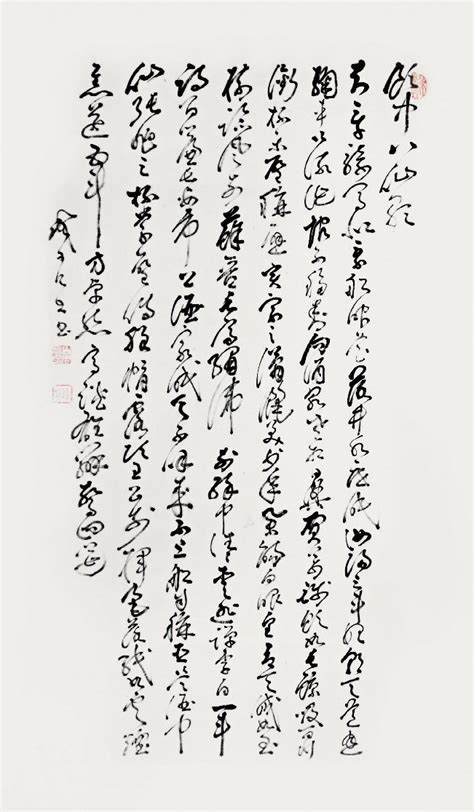 飲中八仙歌
知章騎馬似乘船眼花落井水底眠汝陽三斗始朝天道逢
麴車口流涎恨不移封向酒泉左相日興費萬錢飲如長鯨吸百川
銜杯樂聖稱避賢宗之瀟灑美少年舉觴白眼望青天皎如玉
樹臨風前蘇晉長齋繡佛前醉中往往愛逃禪李白一斗
詩百篇長安市上酒家眠天子呼來不上船自稱臣是酒中
仙張旭三杯草聖傳脫帽露頂王公前揮毫落紙如雲煙
焦遂五斗方卓然高談雄辯驚四筵